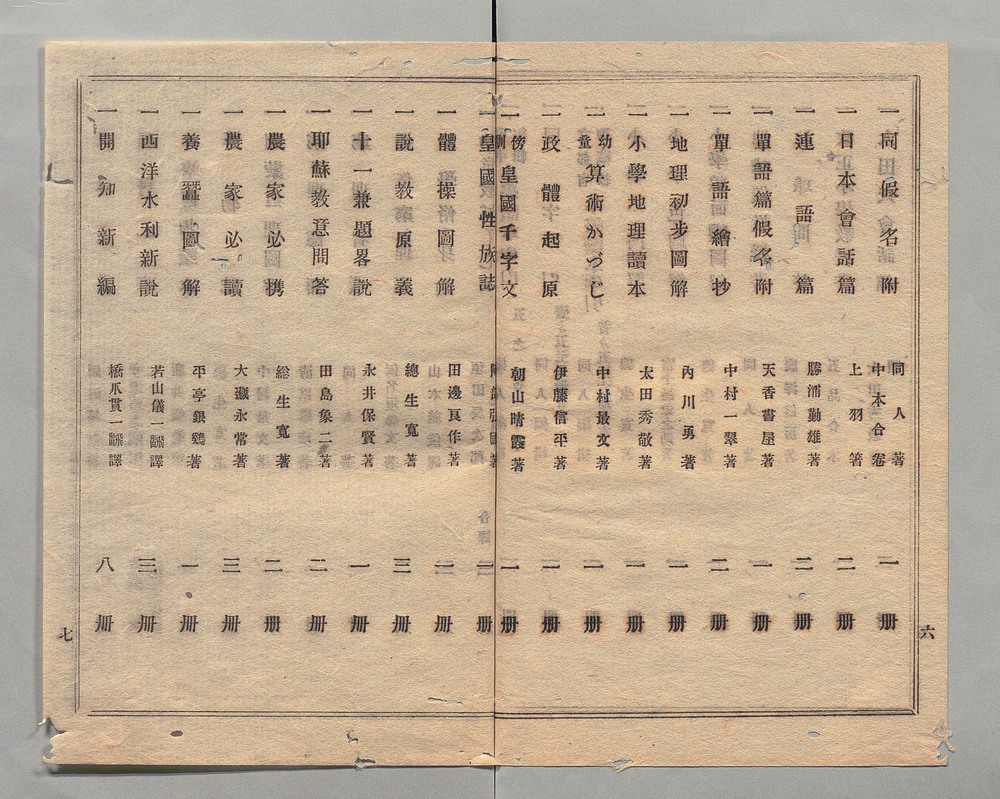 一同假名附 同人著 中本合卷 二册
一日本會話篇 上羽 二册
一連語篇 勝浦勤雄著 二册
一單語篇假名附 天香書屋著 一册
一單語繪抄 中村一翠著 二册
一地理初步圖解 內川勇著 一册
一小學地理讀本 太田秀敬著 一册
一幼童算術かづじ 中村最文著 一册
一政體起原 伊藤信平著 一册
一傍訓皇國千字文 朝山晴霞著 一册
一皇國性族誌 册
一體操圖解 田邊良作著 二册
一說教原義 總生寬著 三册
一十一兼題畧說 永井保賢著 一册
一耶蘇教意問答 田島象二著 二册
一農家必携 総生寬著 二册
一農家必讀 大藏永常著 三册
一養蠶圖解 平亭銀鷄著 一册
一西洋水利新說 若山儀一譯 三册
一開知新編 橋爪貫一譯 八册
六
七